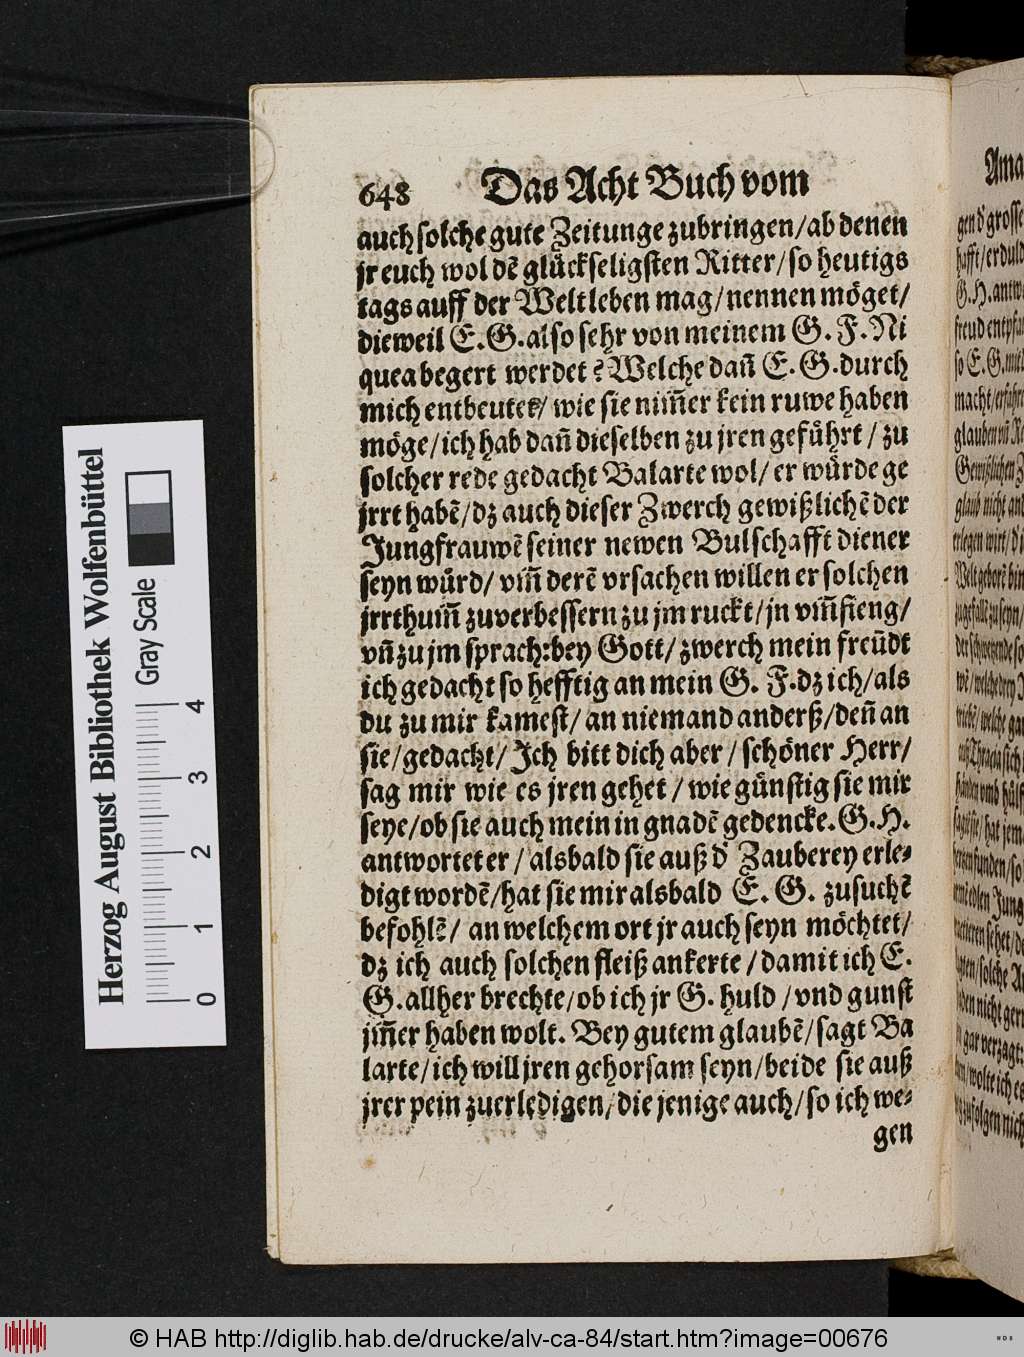 648 Das Acht Buch vom
auch solche gute Zeitunge zubringen/ab denen
jr euch wol dẽ glückseligsten Ritter/so heutigs
tags auff der Welt leben mag/nennen möget/
dieweil E.G.also sehr von meinem G.F.Ni
quea begert werdet? Welche dañ E.G.durch
mich entbeutet/ wie sie nim̃er kein ruwe haben
möge/ich hab dañ dieselben zu jren geführt / zu
solcher rede gedacht Balarte wol/ er würde ge
jrrt habẽ/dz auch dieser Zwerch gewißlichẽ der
Jungfrauwẽ seiner newen Bulschafft diener
seyn würd/ vm̃ derẽ vrsachen willen er solchen
jrrthum̃ zuverbessern zu jm ruckt/jn vm̃fieng/
vñ zu jm sprach:bey Gott/zwerch mein freündt
ich gedacht so hefftig an mein G. F.dz ich/als
du zu mir kamest/ an niemand anderß/deñ an
sie/gedacht/ Ich bitt dich aber / schöner Herr/
sag mir wie es jren gehet / wie günstig sie mir
seye/ob sie auch mein in gnadẽ gedencke.G.H.
antwortet er / alsbald sie auß d' Zauberey erle-
digt wordẽ/hat sie mir alsbald E. G. zusuchẽ
befohlẽ/ an welchem ort jr auch seyn möchtet/
dz ich auch solchen fleiß ankerte / damit ich E.
G.allher brechte/ob ich jr G. huld / vnd gunst
jm̃er haben wolt. Bey gutem glaubẽ/sagt Ba
larte/ich will jren gehorsam seyn/beide sie auß
jrer pein zuerledigen/die jenige auch/so ich we-
gen
Ama
gen d' grosse
hafft/er duld
G.H.antw
freud entpfa
so E.G.mit
macht/erfahre
glauben vñ
Gewißlichen
glaub nicht and
erlegen wirt/
Welt geborẽ bin
zugefallẽ zu seyn/
der schweyende so
auß Thracia sich
handen vmb hülff
sagt sie/hat jem
funden/so
edlen Jung
solche
nicht ger
gar verzagt:
wolte ich es
zufolgen nich
Herzog August Bibliothek Wolfenbüttel
Gray Scale
0 1 2 3 4
© HAB http://diglib.hab.de/drucke/alv-ca-84/start.htm?image=00676